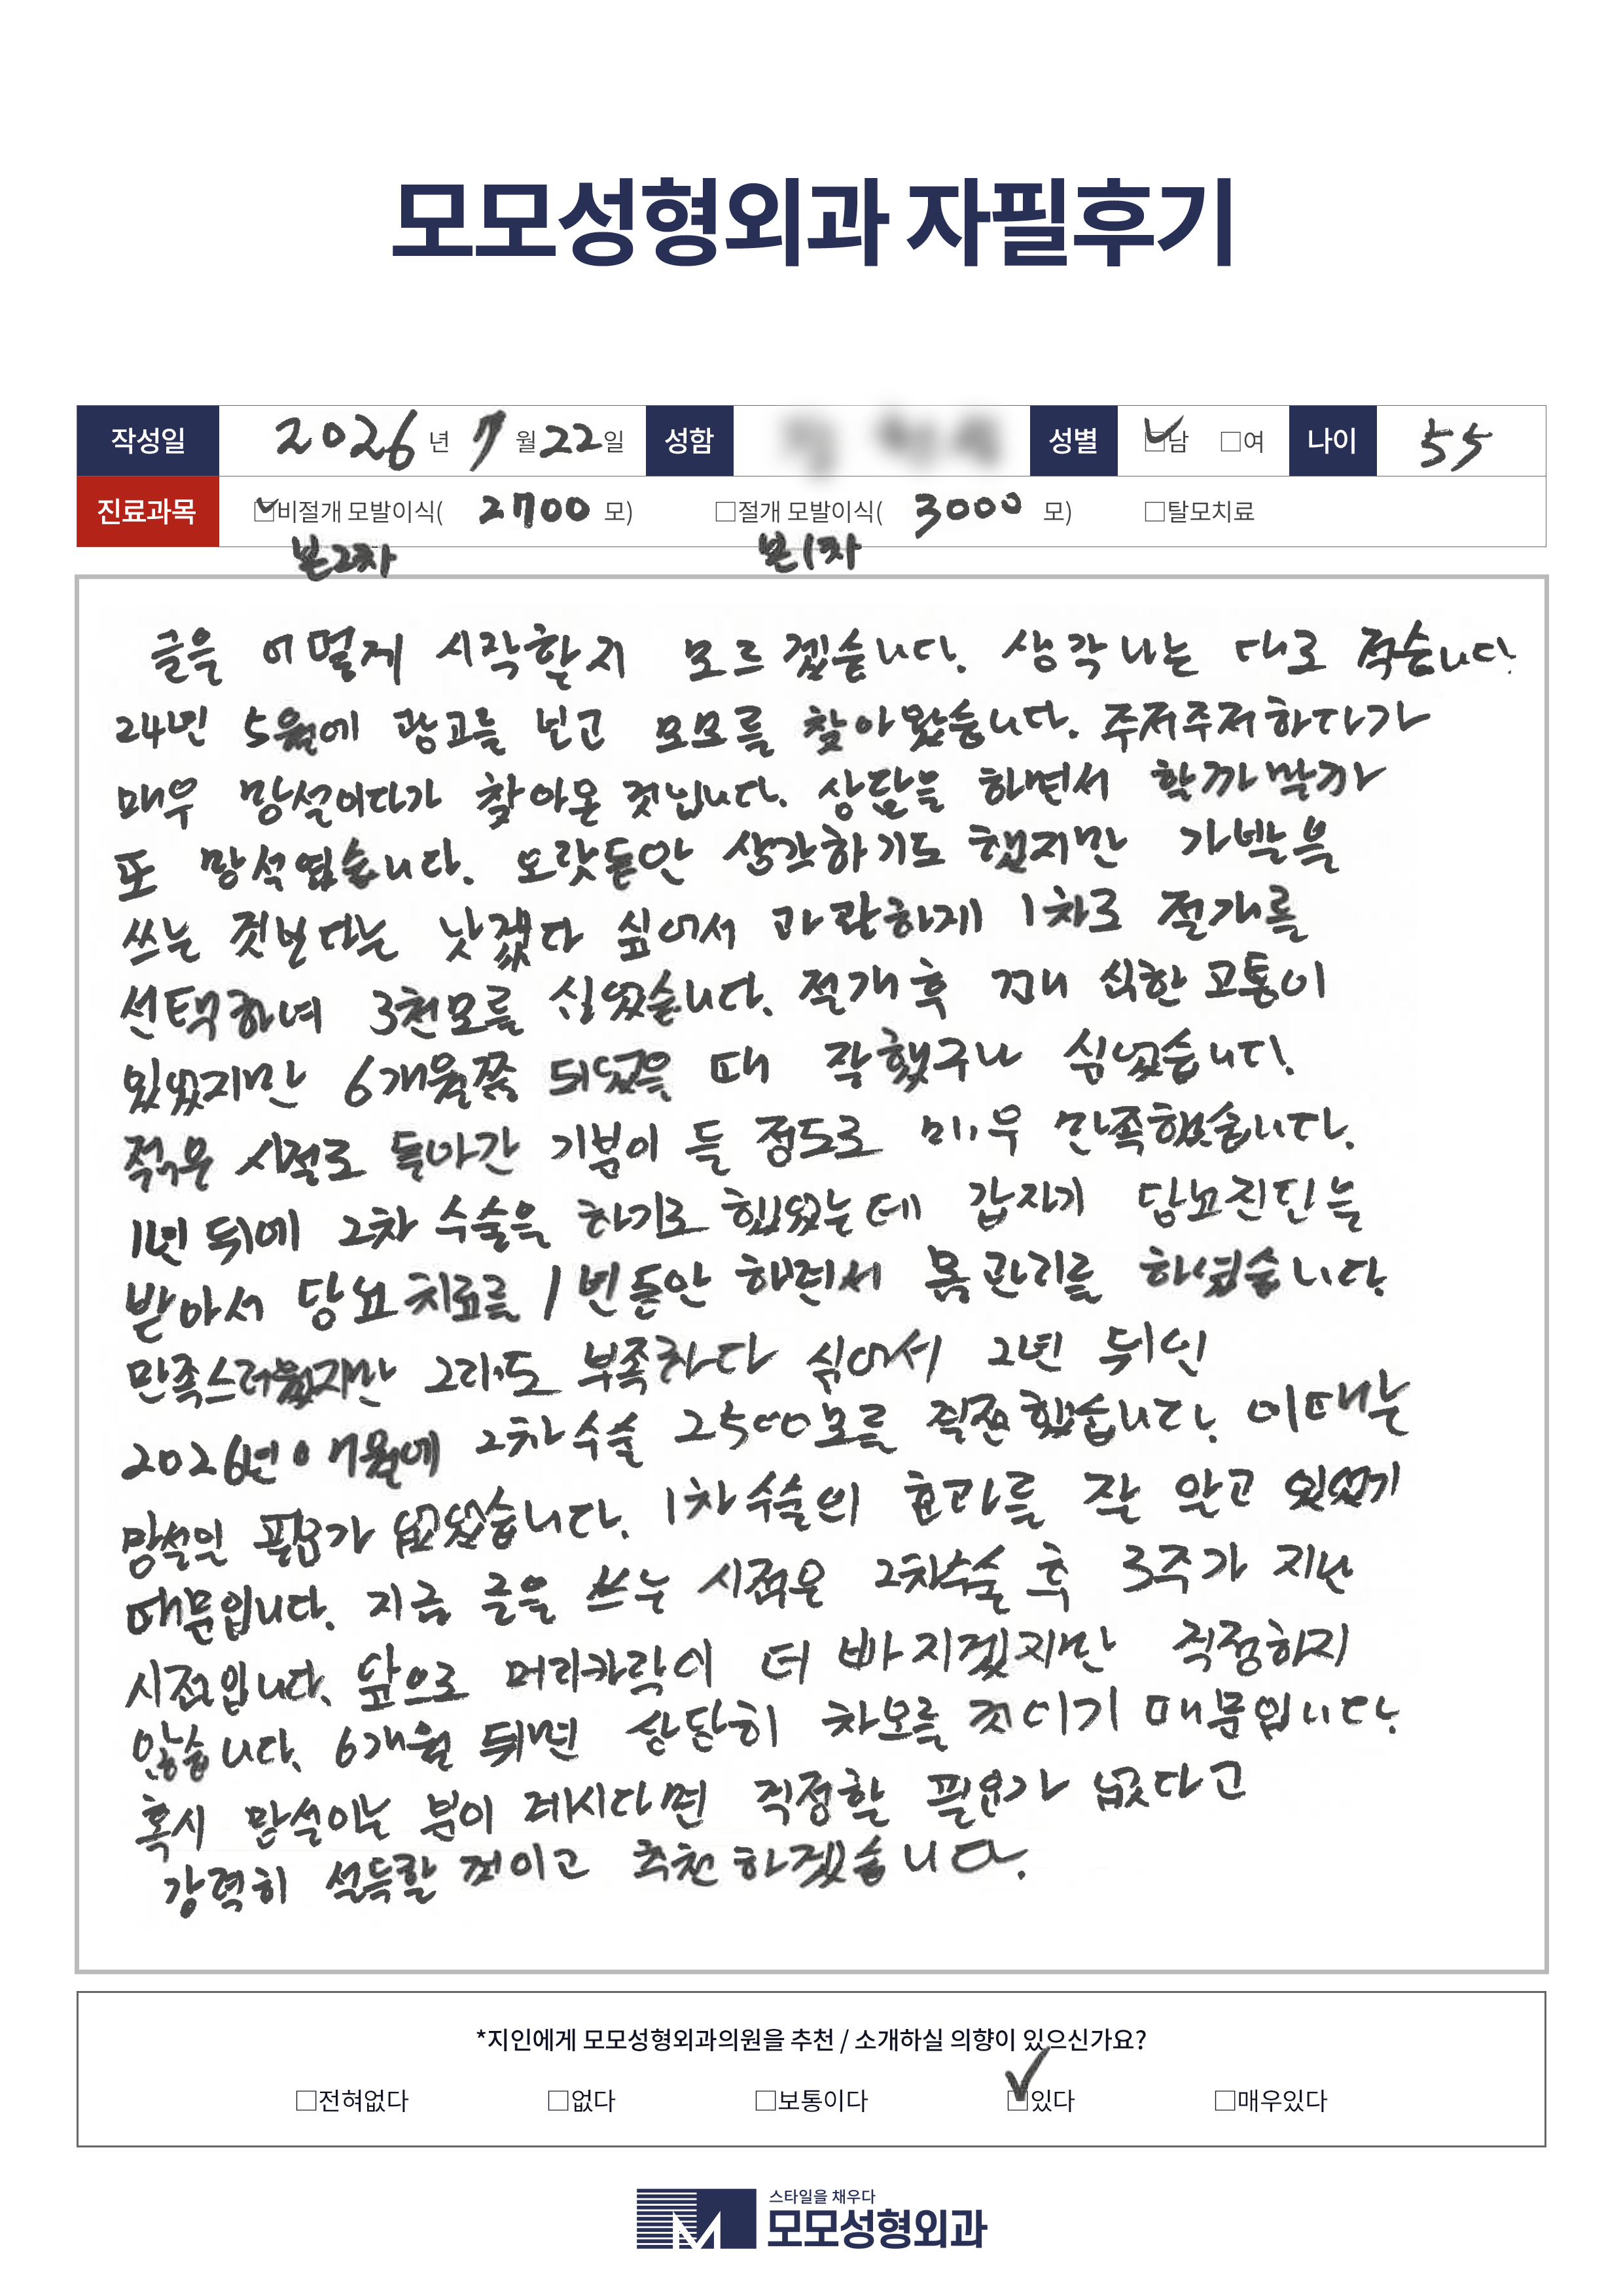 모모성형외과 자필후기
작성일 2026 년 7 월 22 일 성함 성별 □남 □여 나이 55
진료과목 □비절개 모발이식( 2700 모) □절개 모발이식( 3000 모) □탈모치료
본2차 본1차
글을 어떻게 시작할지 모르겠습니다. 생각나는 대로 적습니다.
24년 5월에 광고를 보고 모모를 찾아왔습니다. 주저주저하다가
매우 망설이다가 찾아온 것입니다. 상담을 하면서 할까말까
또 망석였습니다. 오랫동안 생각하기도 했지만 가발을
쓰는 것보다는 낫겠다 싶어서 과감하게 1차로 절개를
선택하여 3천모를 심었습니다. 절개 후 꽤 심한 고통이
있었지만 6개월쯤 되었을 때 잘했구나 싶었습니다.
젊은 시절로 돌아간 기분이 들 정도로 매우 만족했습니다.
1년 뒤에 2차 수술을 하기로 했었는데 갑자기 당뇨진단을
받아서 당뇨 치료를 1년동안 하면서 몸 관리를 하였습니다.
만족스러웠지만 그래도 부족하다 싶어서 2년 뒤인
2026년 7월에 2차 수술 2500모를 했습니다. 이때는
망설일 필요가 없었습니다. 1차 수술의 효과를 잘 알고 있었기
때문입니다. 지금 글을 쓰는 시점은 2차수술 후 3주가 지난
시점입니다. 앞으로 머리카락이 더 빠지겠지만 걱정하지
않습니다. 6개월 뒤면 상당히 자모를 것이기 때문입니다.
혹시 망설이는 분이 계시다면 걱정할 필요가 없다고
강력히 설득할 것이고 추천하겠습니다.
*지인에게 모모성형외과의원을 추천 / 소개하실 의향이 있으신가요?
□전혀없다 □없다 □보통이다 □있다 □매우있다
스타일을 채우다
모모성형외과